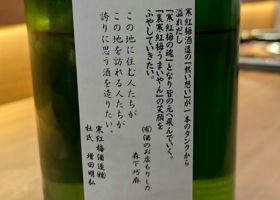 寒紅梅酒造の『熱い想い』が一本のタンクから
溢れだし
『寒紅梅の魂』となり皆の元へ飛んでいく。
『裏寒紅梅うまいやん』の笑顔を
ふやしていきたい。
㈲酒のお店もりした
森下巧麻
この地に住む人たちが
この地を訪れる人たちが
誇りに思う酒を造りたい。
寒紅梅酒造㈱
杜氏 増田明弘